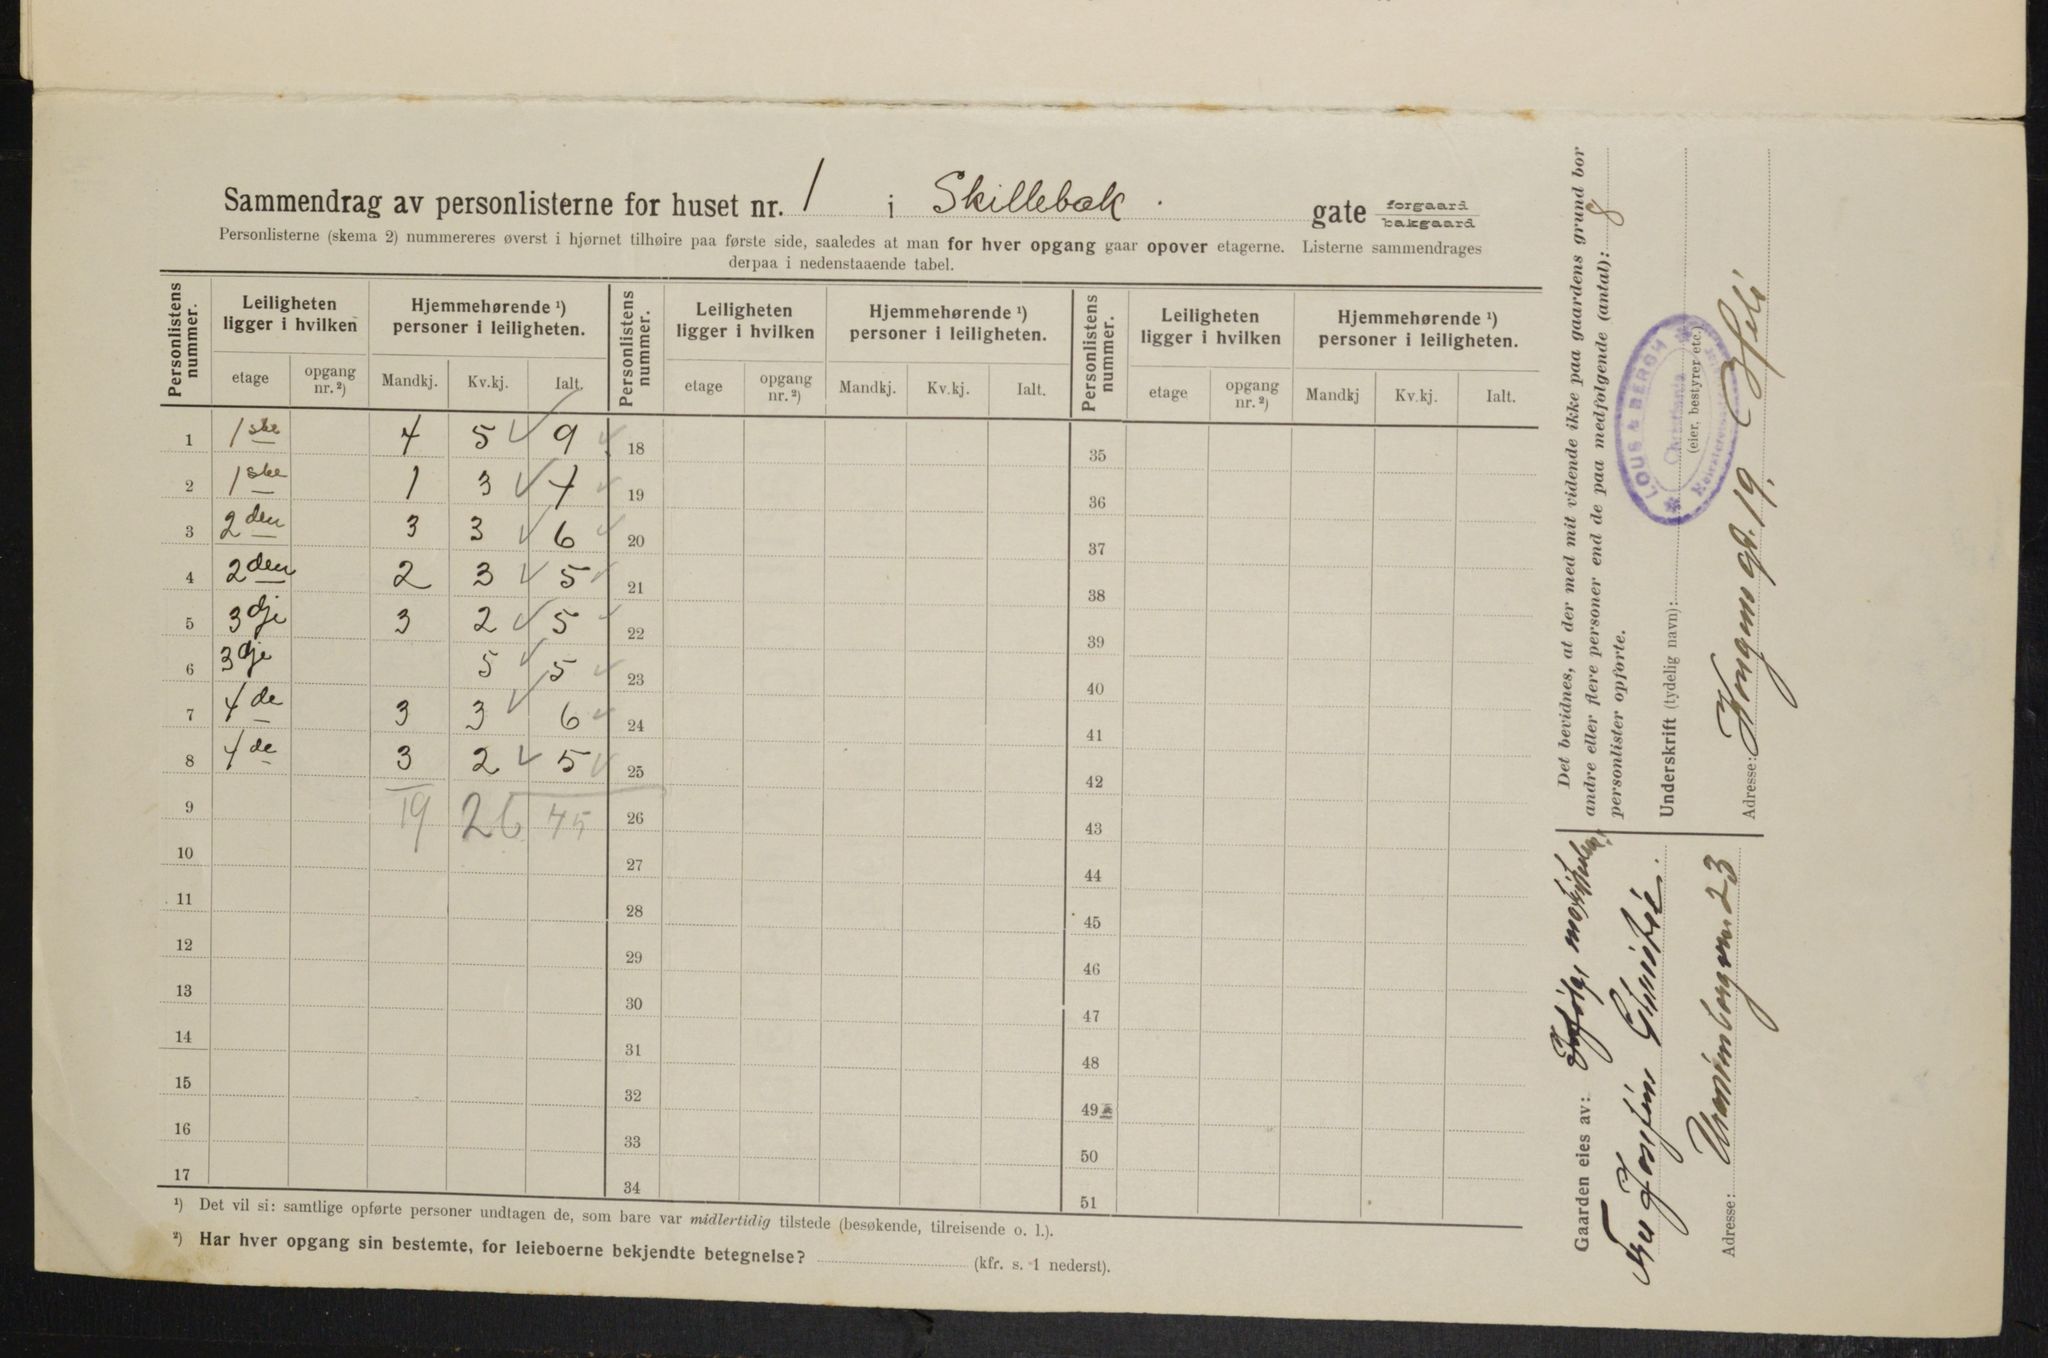 Sammendrag av personlisterne for huset nr. 1 i Skillebæk gate forgaard bakgaard
Personlisterne (skema 2) nummereres øverst i hjørnet tilhøire paa første side, saaledes at man for hver opgang gaar opover etagerne. Listerne sammendrages
derpaa i nedenstaaende tabel.
Personlistens nummer. Leiligheten ligger i hvilken Hjemmehørende ¹) personer i leiligheten. Personlistens nummer. Leiligheten ligger i hvilken Hjemmehørende ¹) personer i leiligheten. Personlistens nummer. Leiligheten ligger i hvilken Hjemmehørende ¹) personer i leiligheten.
etage opgang nr. ²) Mandkj. Kv.kj. Ialt. etage opgang nr. ²) Mandkj. Kv.kj. Ialt. etage opgang nr. ²) Mandkj Kv.kj. Ialt.
1 1ste 4 5 9 18 35
2 1ste 1 3 4 19 36
3 2den 3 3 6 20 37
4 2den 2 3 5 21 38
5 3dje 3 2 5 22 39
6 3dje 5 5 23 40
7 4de 3 3 6 24 41
8 4de 3 2 5 25 42
9 19 26 45 26 43
10 27 44
11 28 45
12 29 46
13 30 47
14 31 48
15 32 49
16 33 50
17 34 51
¹) Det vil si: samtlige opførte personer undtagen de, som bare var midlertidig tilstede (besøkende, tilreisende o. l.).
²) Har hver opgang sin bestemte, for leieboerne bekjendte betegnelse? (kfr. s. 1 nederst).
Det bevidnes, at der med mit vidende ikke paa gaardens grund bor
andre eller flere personer end de paa medfølgende (antal): 8
personlister opførte.
Underskrift (tydelig navn):
(eier, bestyrer etc.)
LOUS & BERGH
Christiania
Adresse: Kongens gt. 19.
Gaarden eies av:
Fru Josefin
Adresse: 23